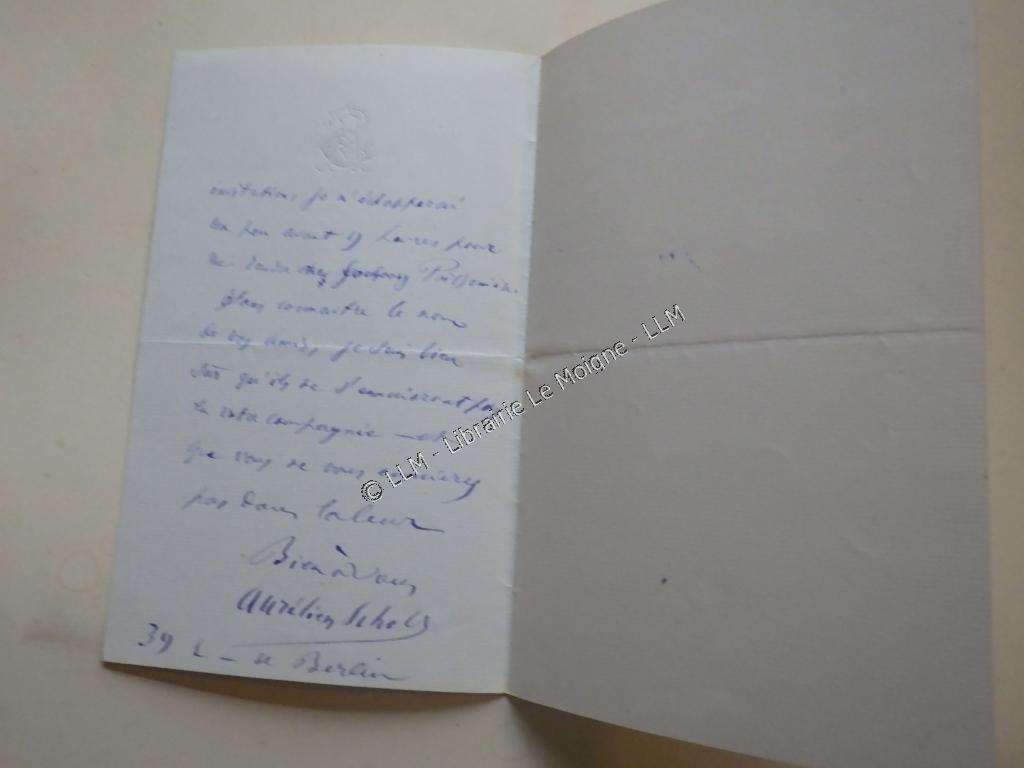 invitations je m'échapperai
un peu avant 9 heures pour
me
Sans connaitre le nom
de vos amis, je suis bien
sûr qu'ils ne s'ennuieront pas
en votre compagnie — et
que vous ne vous
pas dans la leur
Bien à vous
Aurélien Scholl
39 de Berlin
© LLM - Librairie Le Moigne - LLM